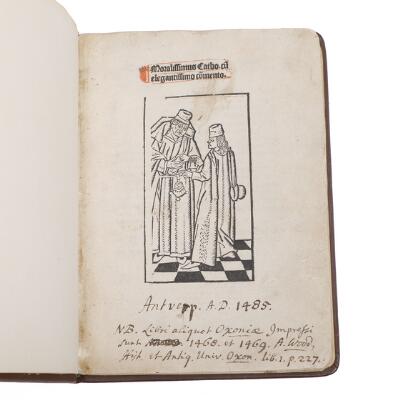 Moralissimus Catho. cũ
elegantissimo cõmento.
Antverp. A.D. 1485.
NB. Libri aliquot Oxoniæ Impressi
sunt 1468. et 1469. A. Wood.
Hist. et Antiq. Univ. Oxon. lib. 1. p. 227.